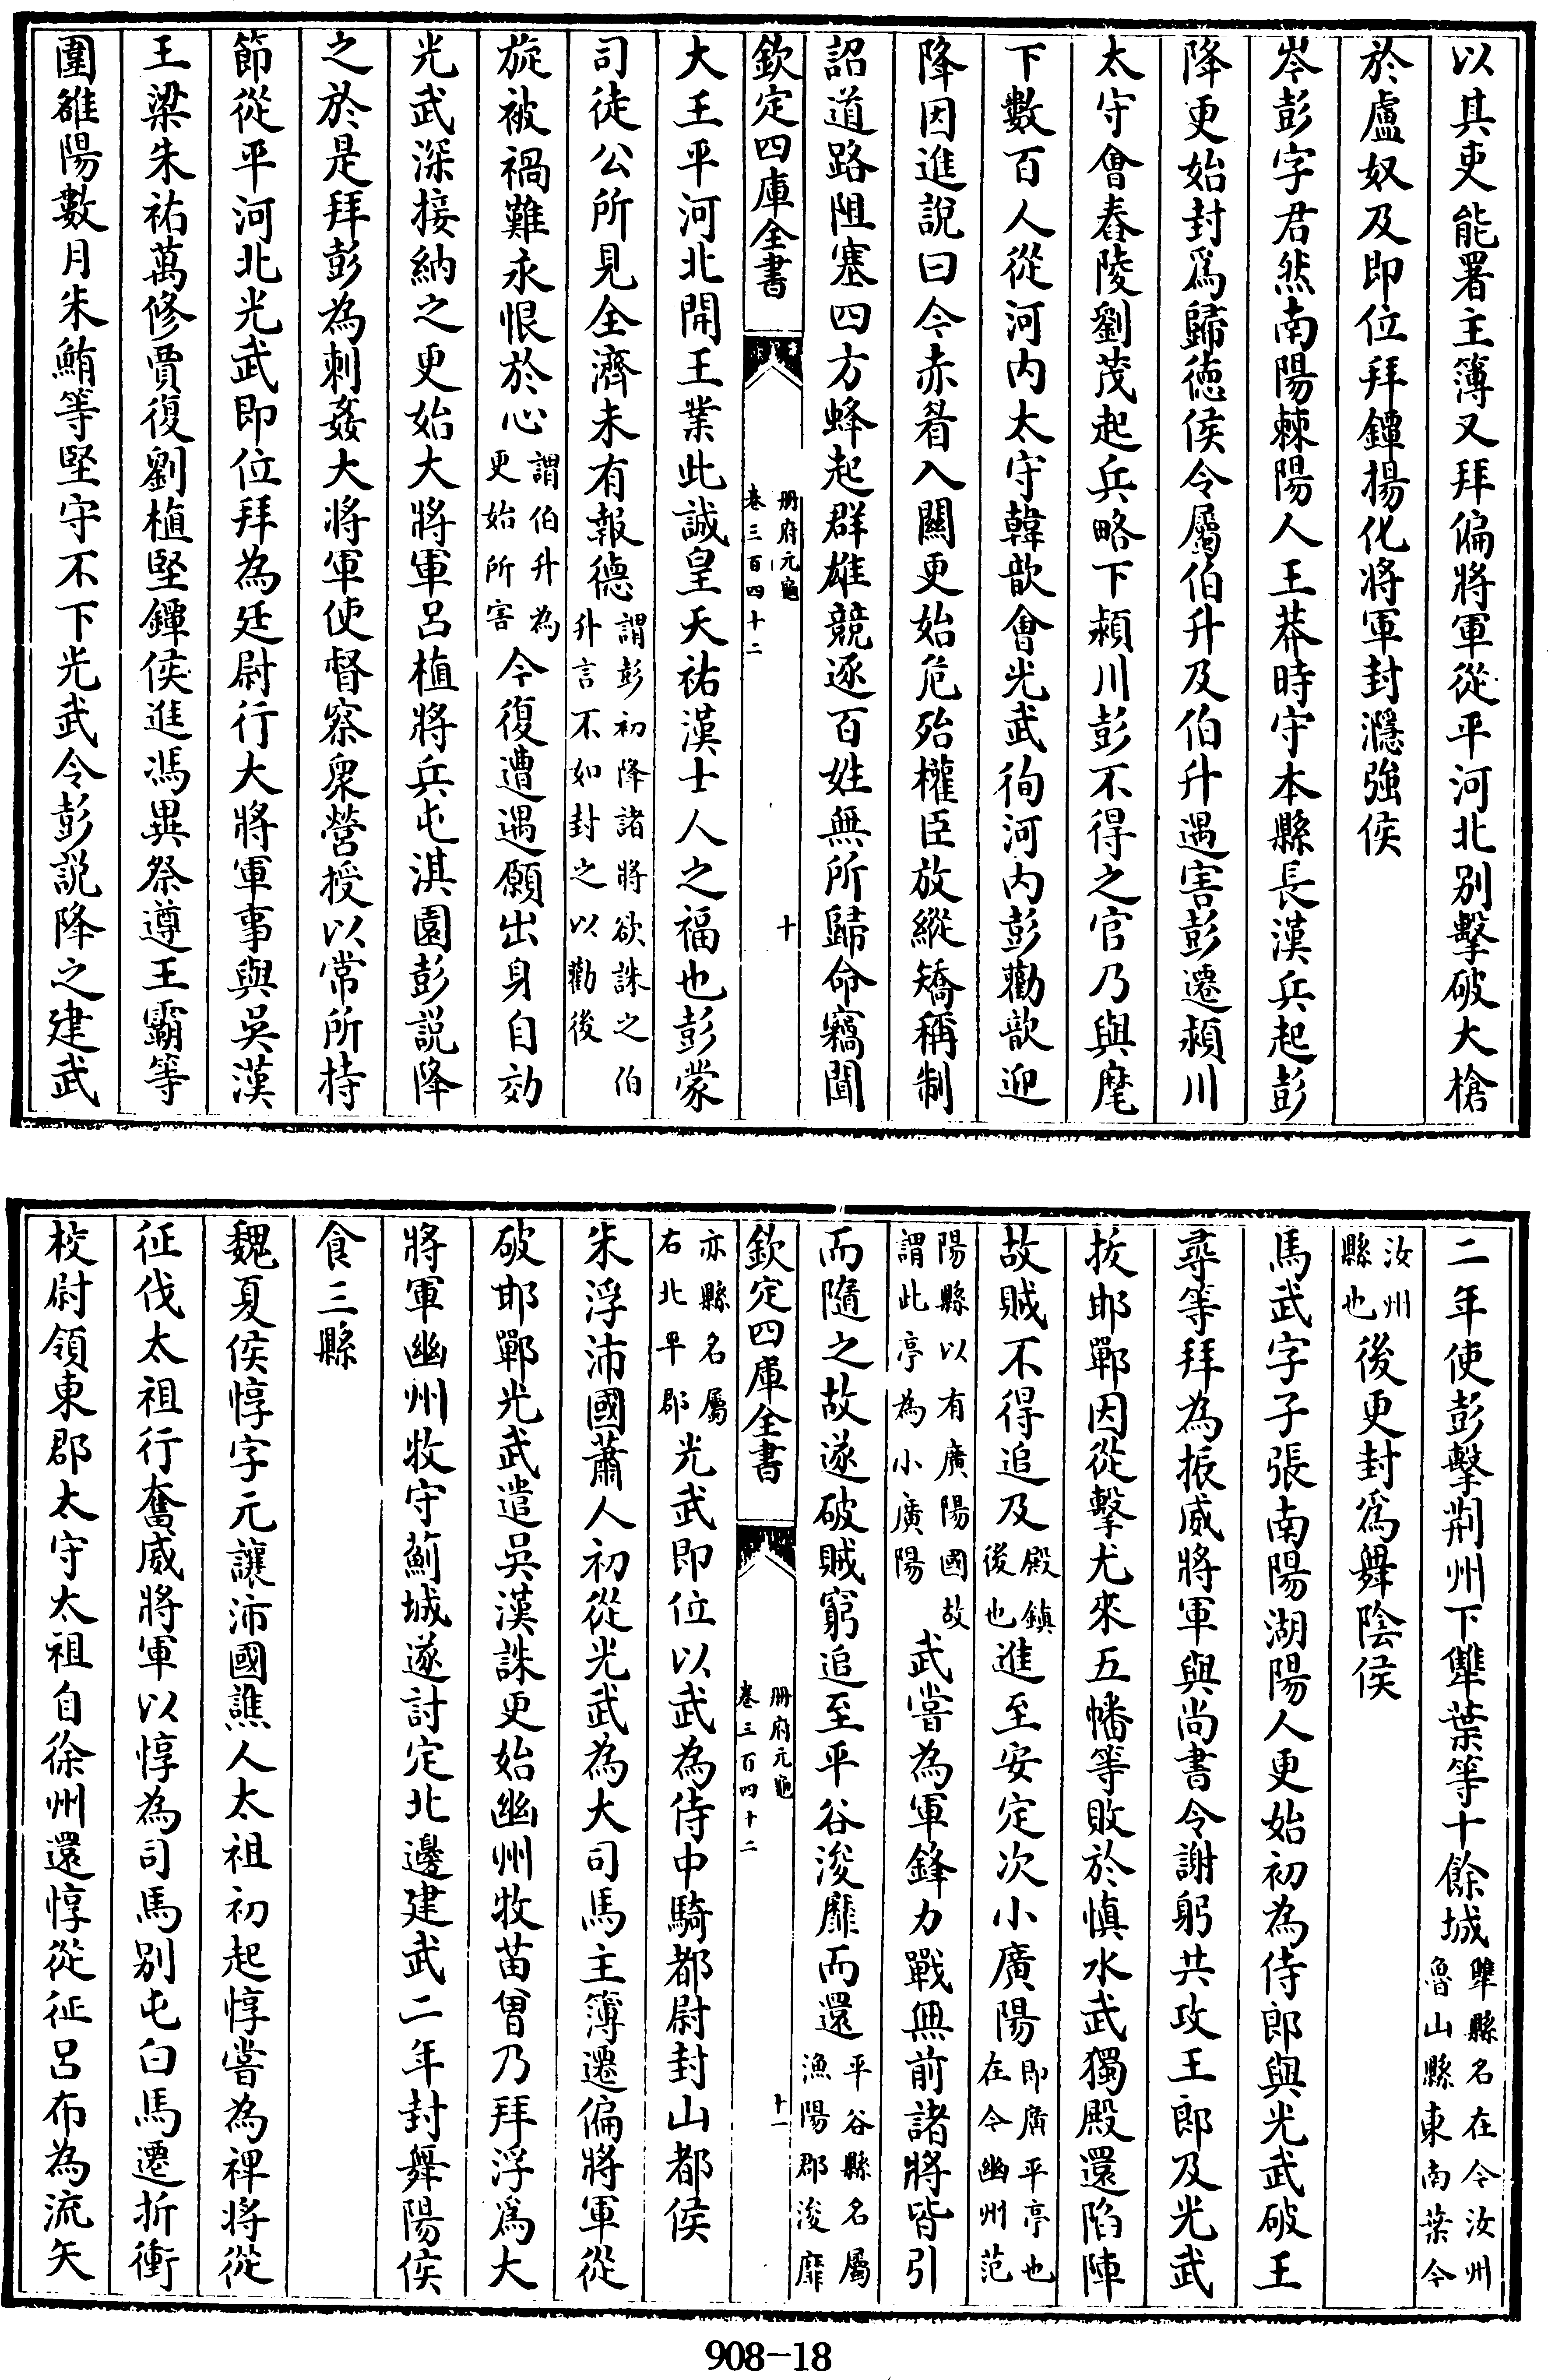 以其吏能署主簿又拜偏將軍從平河北别擊破大槍
於盧奴及即位拜鐔揚化將軍封濦強侯
岑彭字君然南陽棘陽人王莽時守本縣長漢兵起彭
降更始封爲歸徳侯令屬伯升及伯升遇害彭遷潁川
太守會舂陵劉茂起兵略下潁川彭不得之官乃與麾
下數百人從河内太守韓歆會光武徇河内彭勸歆迎
降因進說曰今赤眉入關更始危殆權臣放縱矯稱制
詔道路阻塞四方蜂起群雄競逐百姓無所歸命竊聞
欽定四庫全書
册府元龜
卷三百四十二
十
大王平河北開王業此誠皇天祐漢士人之福也彭蒙
司徒公所見全濟未有報德謂彭初降諸將欲誅之伯升言不如封之以勸後
旋被禍難永恨於心謂伯升為更始所害今復遭遇願出身自効
光武深接納之更始大將軍呂植將兵屯淇園彭説降
之於是拜彭為刺姦大將軍使督察衆營授以常所持
節從平河北光武即位拜為廷尉行大將軍事與吳漢
王梁朱祐萬修賈復劉植堅鐔侯進馮異祭遵王霸等
圍雒陽數月朱鮪等堅守不下光武令彭説降之建武
二年使彭擊荆州下犨葉等十餘城犨縣名在今汝州魯山縣東南葉今
汝州縣也後更封爲舞陰侯
馬武字子張南陽湖陽人更始初為侍郎與光武破王
尋等拜為振威將軍與尚書令謝躬共攻王郎及光武
拔邯鄲因從擊尤來五幡等敗於慎水武獨殿還陷陣
故賊不得追及殿鎮後也進至安定次小廣陽即廣平亭也在今幽州范
陽縣以有廣陽國故謂此亭為小廣陽武嘗為軍鋒力戰無前諸將皆引
而隨之故遂破賊窮追至平谷浚靡而還平谷縣名屬漁陽郡浚靡
欽定四庫全書
册府元龜
卷三百四十二
十一
亦縣名屬右北平郡光武即位以武為侍中騎都尉封山都侯
朱浮沛國蕭人初從光武為大司馬主簿遷偏將軍從
破邯鄲光武遣吳漢誅更始幽州牧苗曾乃拜浮爲大
將軍幽州牧守薊城遂討定北邊建武二年封舞陽侯
食三縣
魏夏侯惇字元讓沛國譙人太祖初起惇嘗為裨將從
征伐太祖行奮威將軍以惇為司馬别屯白馬遷折衝
校尉領東郡太守太祖自徐州還惇從征呂布為流矢
908-18